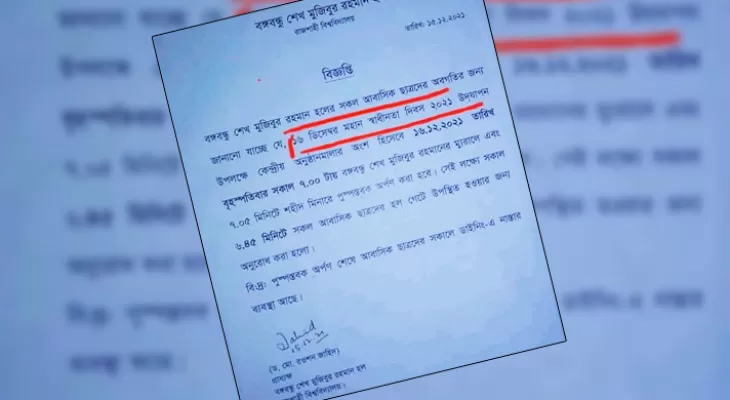 বঙ্গবন্ধু শেখ মুজিবুর রহমান হ
রাজশাহী বিশ্ববিদ্যালয়
তারিখ: ১৫.১২.২০২১
বিজ্ঞপ্তি
বঙ্গবন্ধু শেখ মুজিবুর রহমান হলের সকল আবাসিক ছাত্রদের অবগতির জন্য
জানানো যাচ্ছে যে, ১৬ ডিসেম্বর মহান স্বাধীনতা দিবস ২০২১ উদযাপন
উপলক্ষে কেন্দ্রীয় অনুষ্ঠানমালার অংশ হিসেবে ১৬.১২.২০২১ তারিখ
বৃহস্পতিবার সকাল ৭.০০ টায় বঙ্গবন্ধু শেখ মুজিবুর রহমানের ম্যুরালে এবং
৭.০৫ মিনিটে শহীদ মিনারে পুষ্পস্তবক অর্পণ করা হবে। সেই লক্ষ্যে সকাল
৬.৪৫ মিনিটে সকল আবাসিক ছাত্রদের হল গেটে উপস্থিত হওয়ার জন্য
অনুরোধ করা হলো।
বি:দ্র: পুষ্পস্তবক অর্পণ শেষে আবাসিক ছাত্রদের সকালে ডাইনিং-এ নাস্তার
ব্যবস্থা আছে।
(ড. মো. রওশন জাহিদ)
প্রাধ্যক্ষ
বঙ্গবন্ধু শেখ মুজিবুর রহমান হল
রাজশাহী বিশ্ববিদ্যালয়।